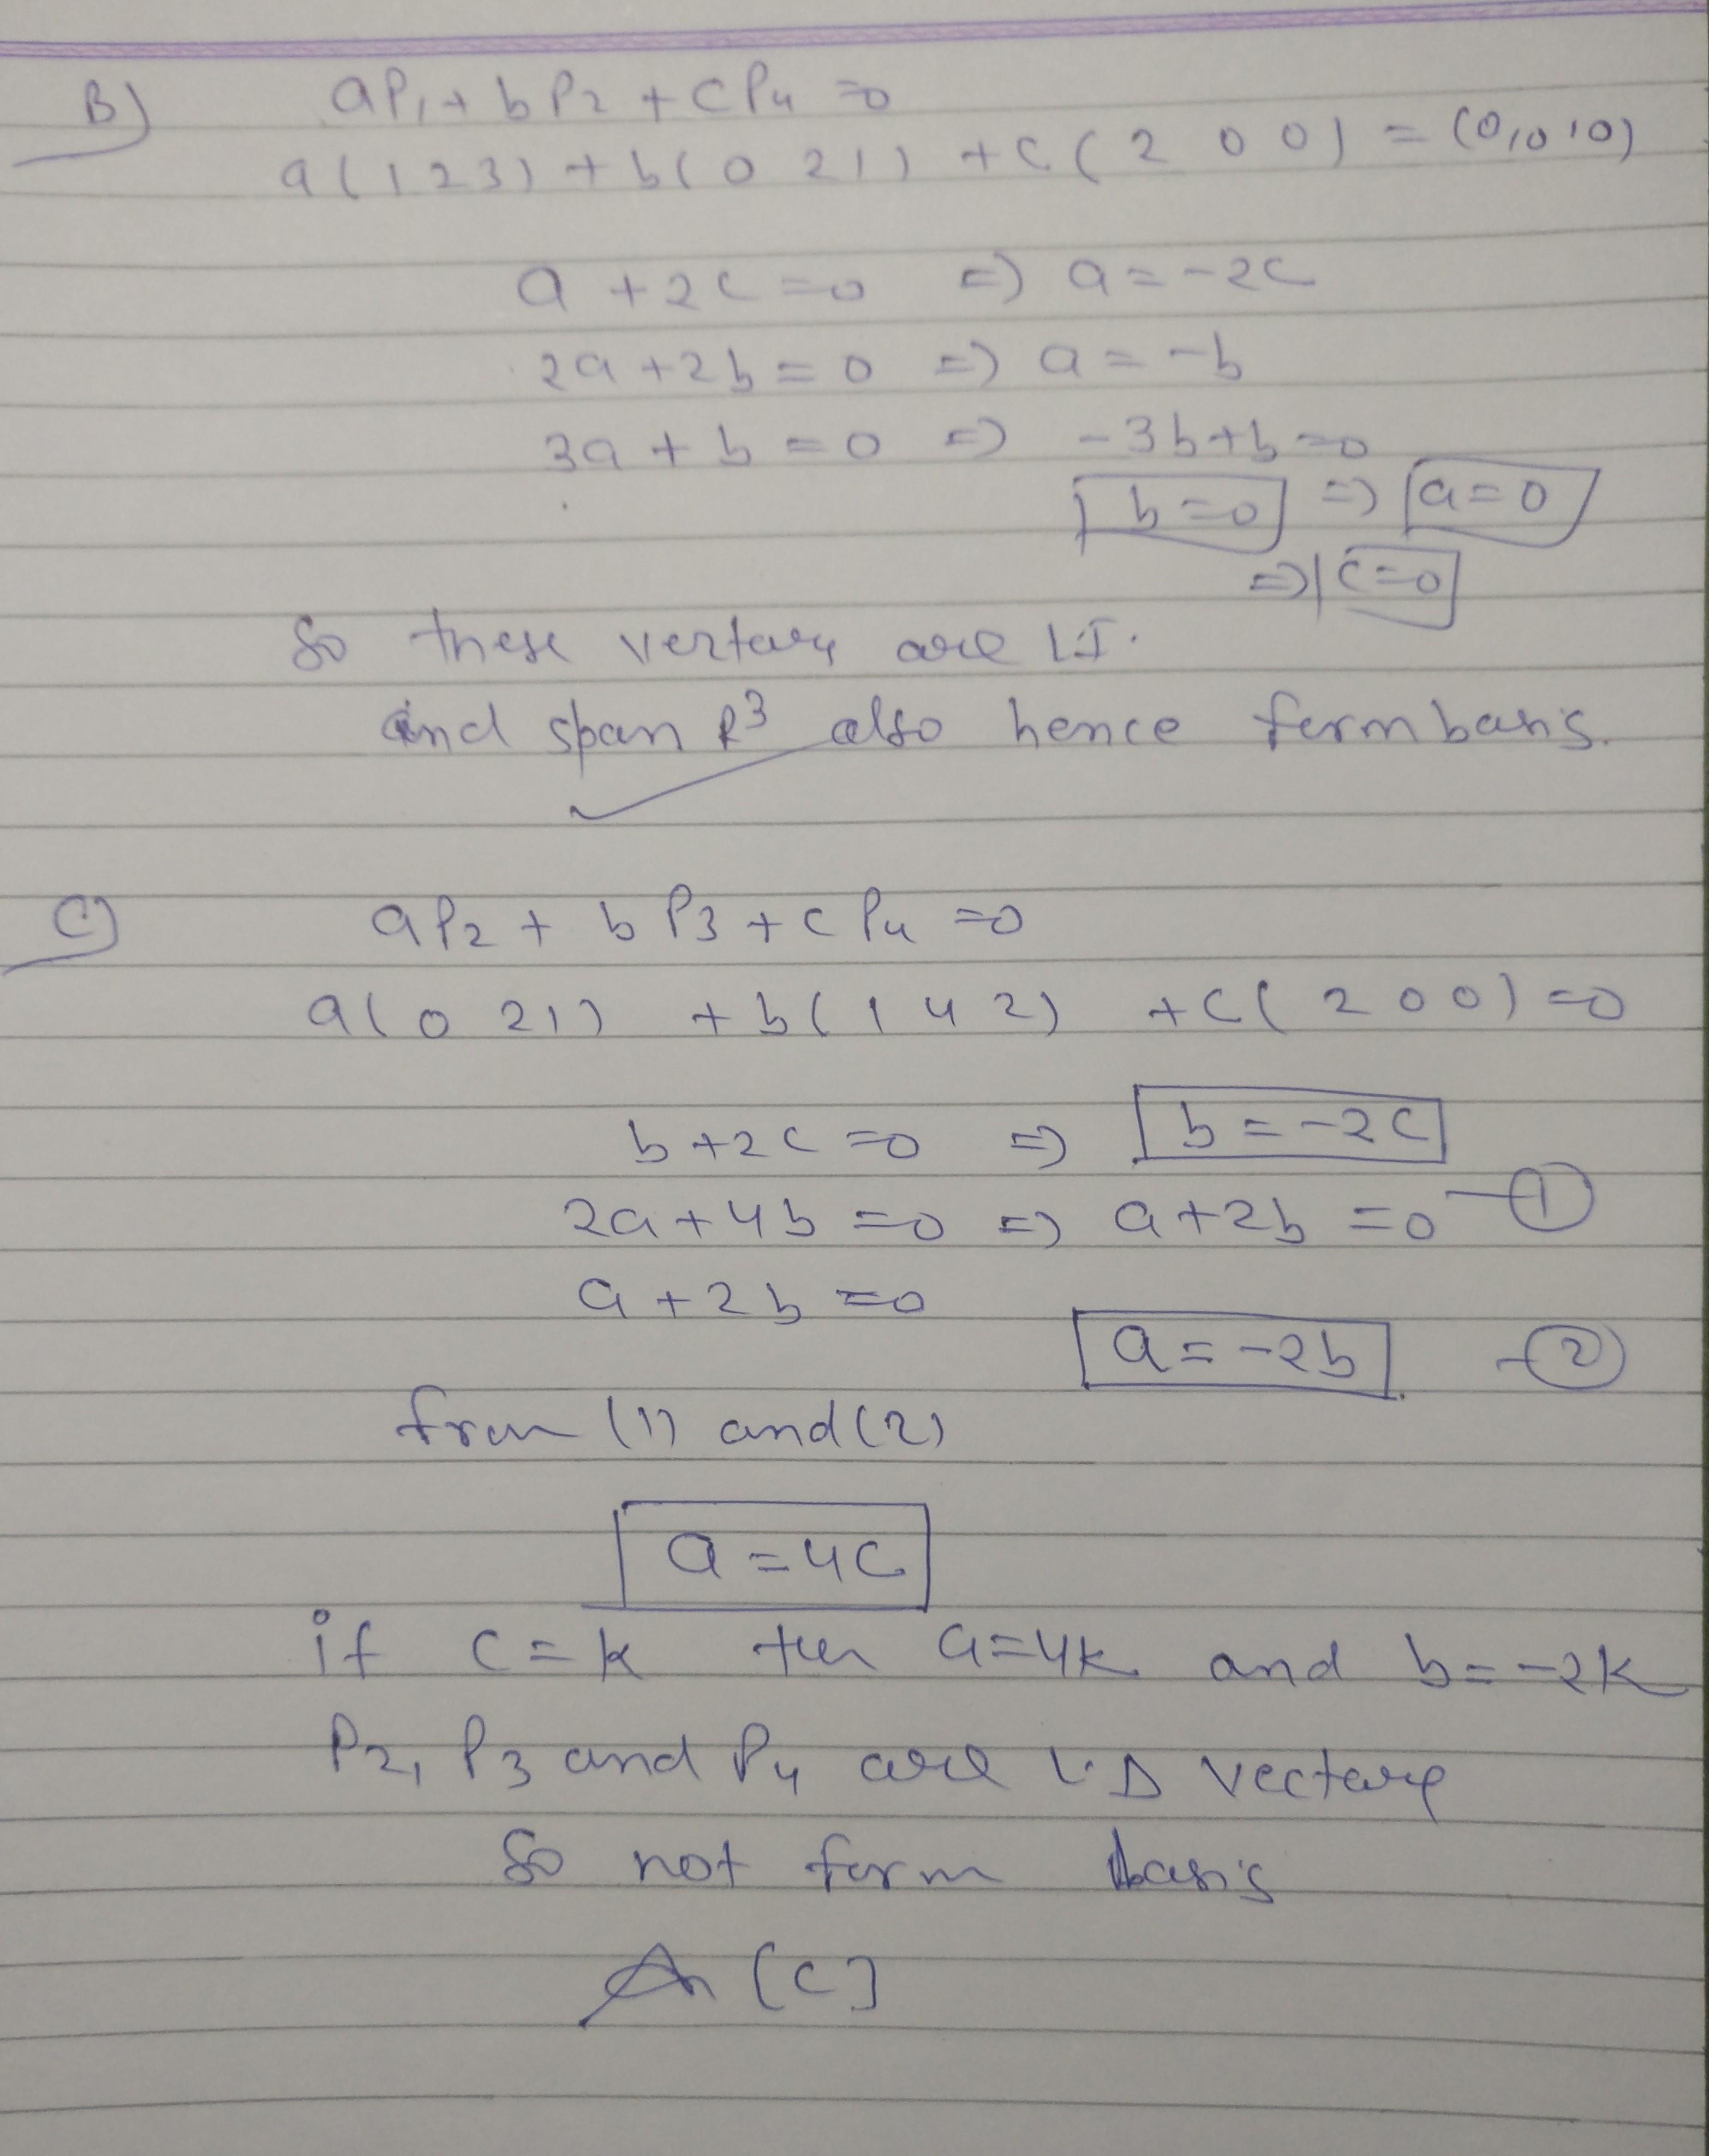 B) aP1 + bP2 + cP4 =0
a(1 2 3) + b(0 2 1) + c(2 0 0) = (0,0,0)
a + 2c =0 => a = -2c
2a + 2b = 0 => a = -b
3a + b = 0 => -3b+b =0
b=0 => a=0
=> c=0
So these vertors are L.I.
and span R3 also hence form basis.
C) aP2 + bP3 + cP4 =0
a(0 2 1) + b(1 4 2) + c(2 0 0) =0
b + 2c =0 => b = -2c
2a + 4b =0 => a + 2b =0 - 1
a + 2b =0
a = -2b - 2
from (1) and (2)
a = 4c
if c = k then a=4k and b = -2k
P2, P3 and P4 are L.D vectors
So not form basis
An [C]